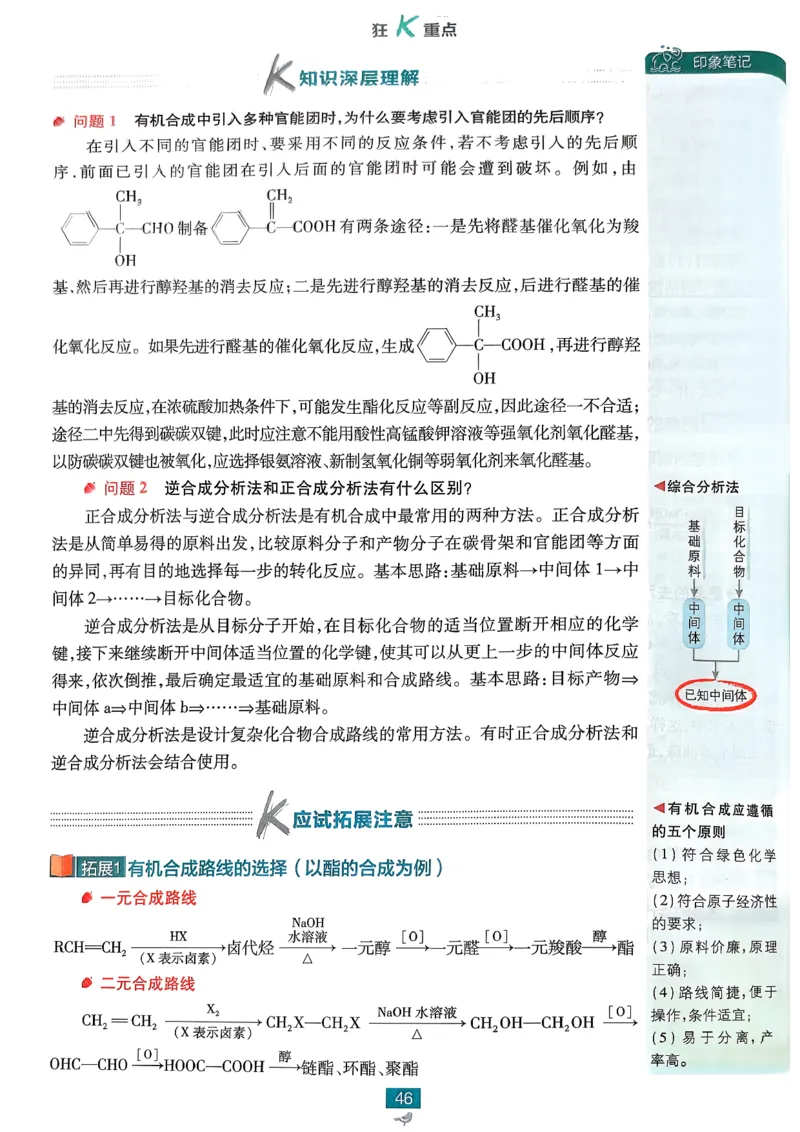 狂K重点
K知识深层理解
问题1 有机合成中引入多种官能团时,为什么要考虑引入官能团的先后顺序?
在引入不同的官能团时、要采用不同的反应条件,若不考虑引入的先后顺
序,前面已引入的官能团在引入后面的官能团时可能会遭到破坏。例如,由
CH₃
CH₂
C—CHO制备 C—COOH有两条途径:一是先将醛基催化氧化为羧
OH
基,然后再进行醇羟基的消去反应;二是先进行醇羟基的消去反应,后进行醛基的催
CH₃
化氧化反应。如果先进行醛基的催化氧化反应,生成 C—COOH,再进行醇羟
OH
基的消去反应,在浓硫酸加热条件下,可能发生酯化反应等副反应,因此途径一不合适;
途径二中先得到碳碳双键,此时应注意不能用酸性高锰酸钾溶液等强氧化剂氧化醛基,
以防碳碳双键也被氧化,应选择银氨溶液、新制氢氧化铜等弱氧化剂来氧化醛基。
问题2 逆合成分析法和正合成分析法有什么区别?
正合成分析法与逆合成分析法是有机合成中最常用的两种方法。正合成分析
法是从简单易得的原料出发,比较原料分子和产物分子在碳骨架和官能团等方面
的异同,再有目的地选择每一步的转化反应。基本思路:基础原料→中间体1→中
间体2→……→目标化合物。
逆合成分析法是从目标分子开始,在目标化合物的适当位置断开相应的化学
键,接下来继续断开中间体适当位置的化学键,使其可以从更上一步的中间体反应
得来,依次倒推,最后确定最适宜的基础原料和合成路线。基本思路:目标产物⇒
中间体a⇒中间体b⇒……⇒基础原料。
逆合成分析法是设计复杂化合物合成路线的常用方法。有时正合成分析法和
逆合成分析法会结合使用。
K应试拓展注意
拓展1 有机合成路线的选择(以酯的合成为例)
一元合成路线
RCH=CH₂ —HX(X表示卤素)→卤代烃 —NaOH水溶液△→一元醇 —[O]→一元醛 —[O]→一元羧酸 —醇→酯
二元合成路线
CH₂=CH₂ —X₂(X表示卤素)→CH₂X—CH₂X —NaOH水溶液△→CH₂OH—CH₂OH —[O]→
OHC—CHO —[O]→HOOC—COOH —醇→链酯、环酯、聚酯
46
印象笔记
◀综合分析法
基础原料
目标化合物
中间体
中间体
已知中间体
◀有机合成应遵循
的五个原则
(1)符合绿色化学
思想;
(2)符合原子经济性
的要求;
(3)原料价廉,原理
正确;
(4)路线简捷,便于
操作,条件适宜;
(5)易于分离,产
率高。